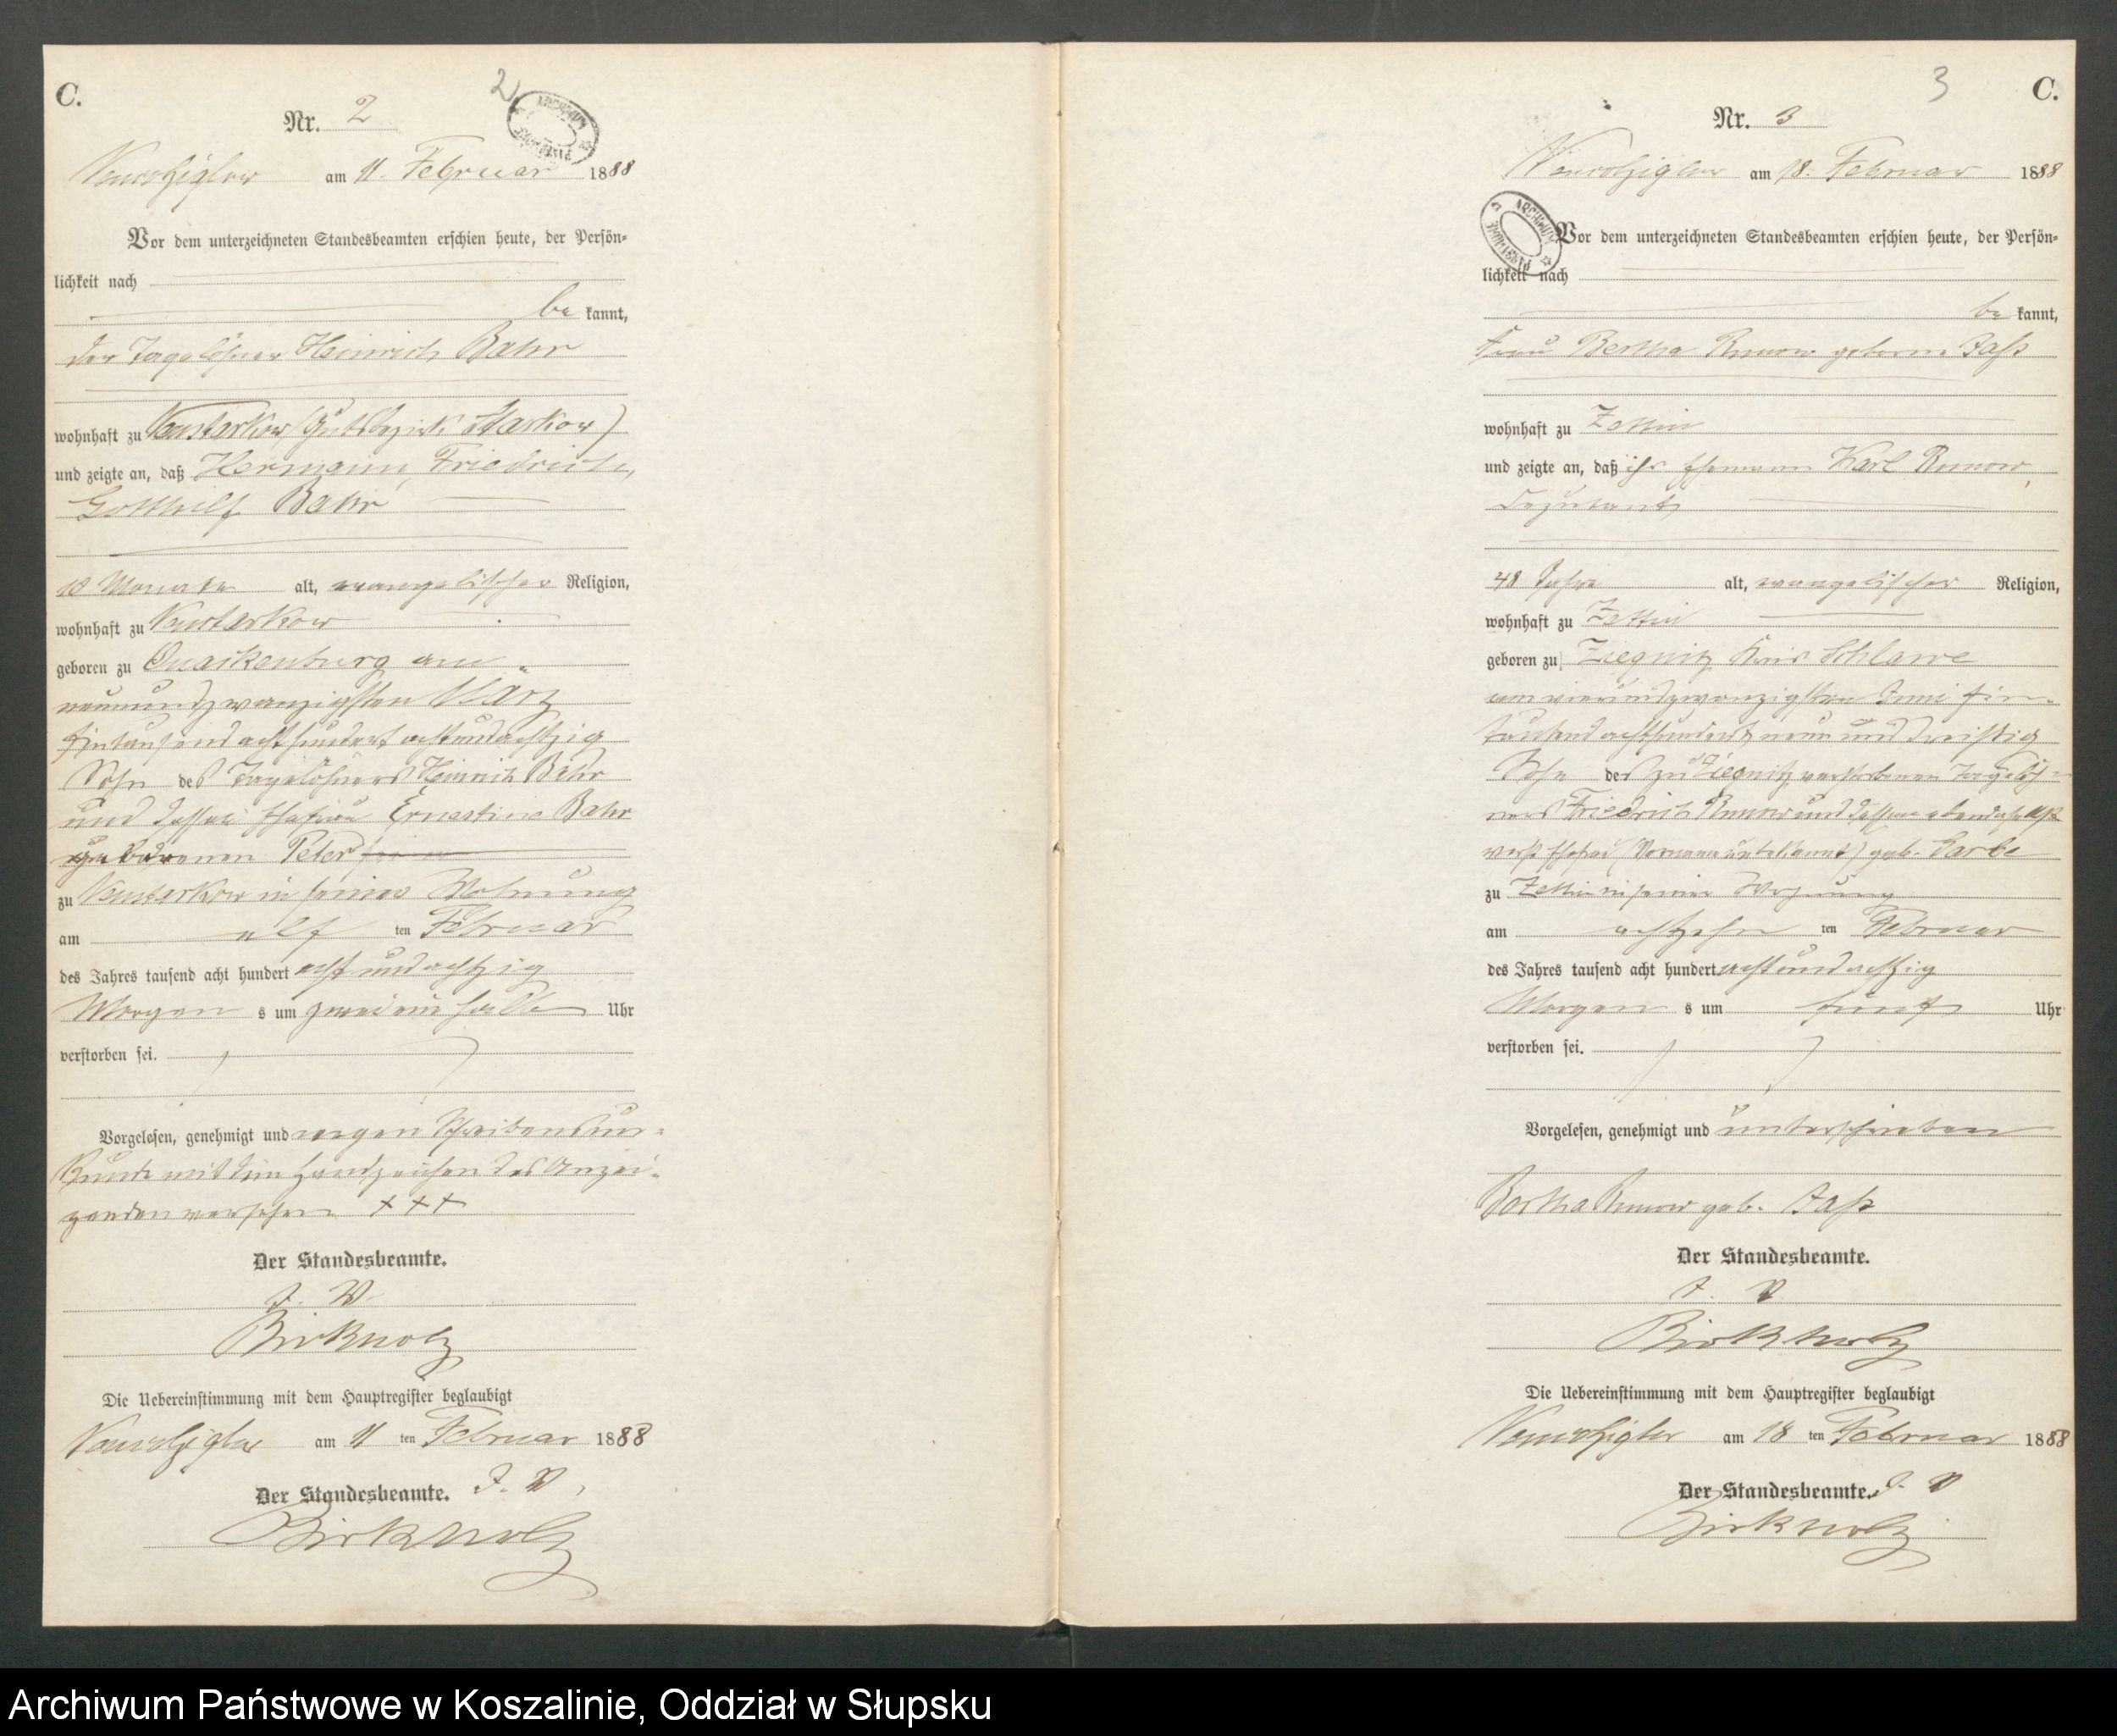 C.
2
Nr. 2
am 11. Februar 1888
Vor dem unterzeichneten Standesbeamten erschien heute, der Persön=
lichkeit nach
be kannt,
der Tagelöhner Heinrich Bahr
wohnhaft zu Neustarkow (Gutsbezirk Starkow)
und zeigte an, daß Hermann, Friedrich,
Gotthilf Bahr
10 Monate alt, evangelischer Religion,
wohnhaft zu Neustarkow
geboren zu Quackenburg am
neunundzwanzigsten März
Eintausend achthundert achtundachtzig
Sohn des Tagelöhners Heinrich Bahr
und dessen Ehefrau Ernestine Bahr
geborenen Peter
zu Neustarkow in seiner Wohnung
am elf ten Februar
des Jahres tausend acht hundert acht und achtzig
Morgen s um zwei ein halb Uhr
verstorben sei.
Vorgelesen, genehmigt und wegen Schreibensun=
kunde mit dem Handzeichen des Anzei=
genden versehen +++
Der Standesbeamte.
J. V.
Birkholz
Die Uebereinstimmung mit dem Hauptregister beglaubigt
am 11 ten Februar 1888
Der Standesbeamte. J. V.
Birkholz
3
C.
Nr. 3
am 18. Februar 1888
Vor dem unterzeichneten Standesbeamten erschien heute, der Persön=
lichkeit nach
be kannt,
Frau Bertha geborne
wohnhaft zu Zettin
und zeigte an, daß ihr Ehemann Karl
Deputant
48 Jahre alt, evangelischer Religion,
wohnhaft zu Zettin
geboren zu Ziegnitz Kreis Schlawe
am vierundzwanzigsten Juni Ein=
tausend achthundert neun und dreißig
Sohn des zu Ziegnitz verstorbenen Tagelöh=
ners Friedrich und dessen ebendaselbst
verst. Ehefrau (Vorname unbekannt) geb. Garbe
zu Zettin in seiner Wohnung
am achtzehn ten Februar
des Jahres tausend acht hundert acht und achtzig
Morgen s um fünf Uhr
verstorben sei.
Vorgelesen, genehmigt und unterschrieben
Bertha geb.
Der Standesbeamte.
J. V.
Birkholz
Die Uebereinstimmung mit dem Hauptregister beglaubigt
am 18 ten Februar 1888
Der Standesbeamte. J. V.
Birkholz
Archiwum Państwowe w Koszalinie, Oddział w Słupsku